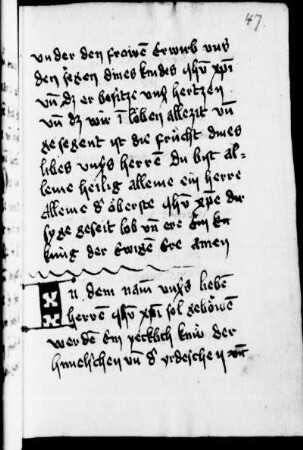 47
vnder den froiwē erwirb vns
den segen dines kindes ihū xpi
vn̄ dz er besitze vnsˢ hertzen
vn̄ dz wir ī loben allezit vn̄
gesegent ist die frücht dines
libes vnsˢs herrē du bist al-
leine heilig alleine ein herre
alleine dˢ oberste ihū xpē dir
syge geseit lob vn̄ ere ein kü
king der ewigen ere amen
In dem nam̄ vnsˢs liebē
herrē ihū xpi sol gebowē
werdē ein yecklich knīw der
himelschen vn̄ dˢ yrdeschen vn̄